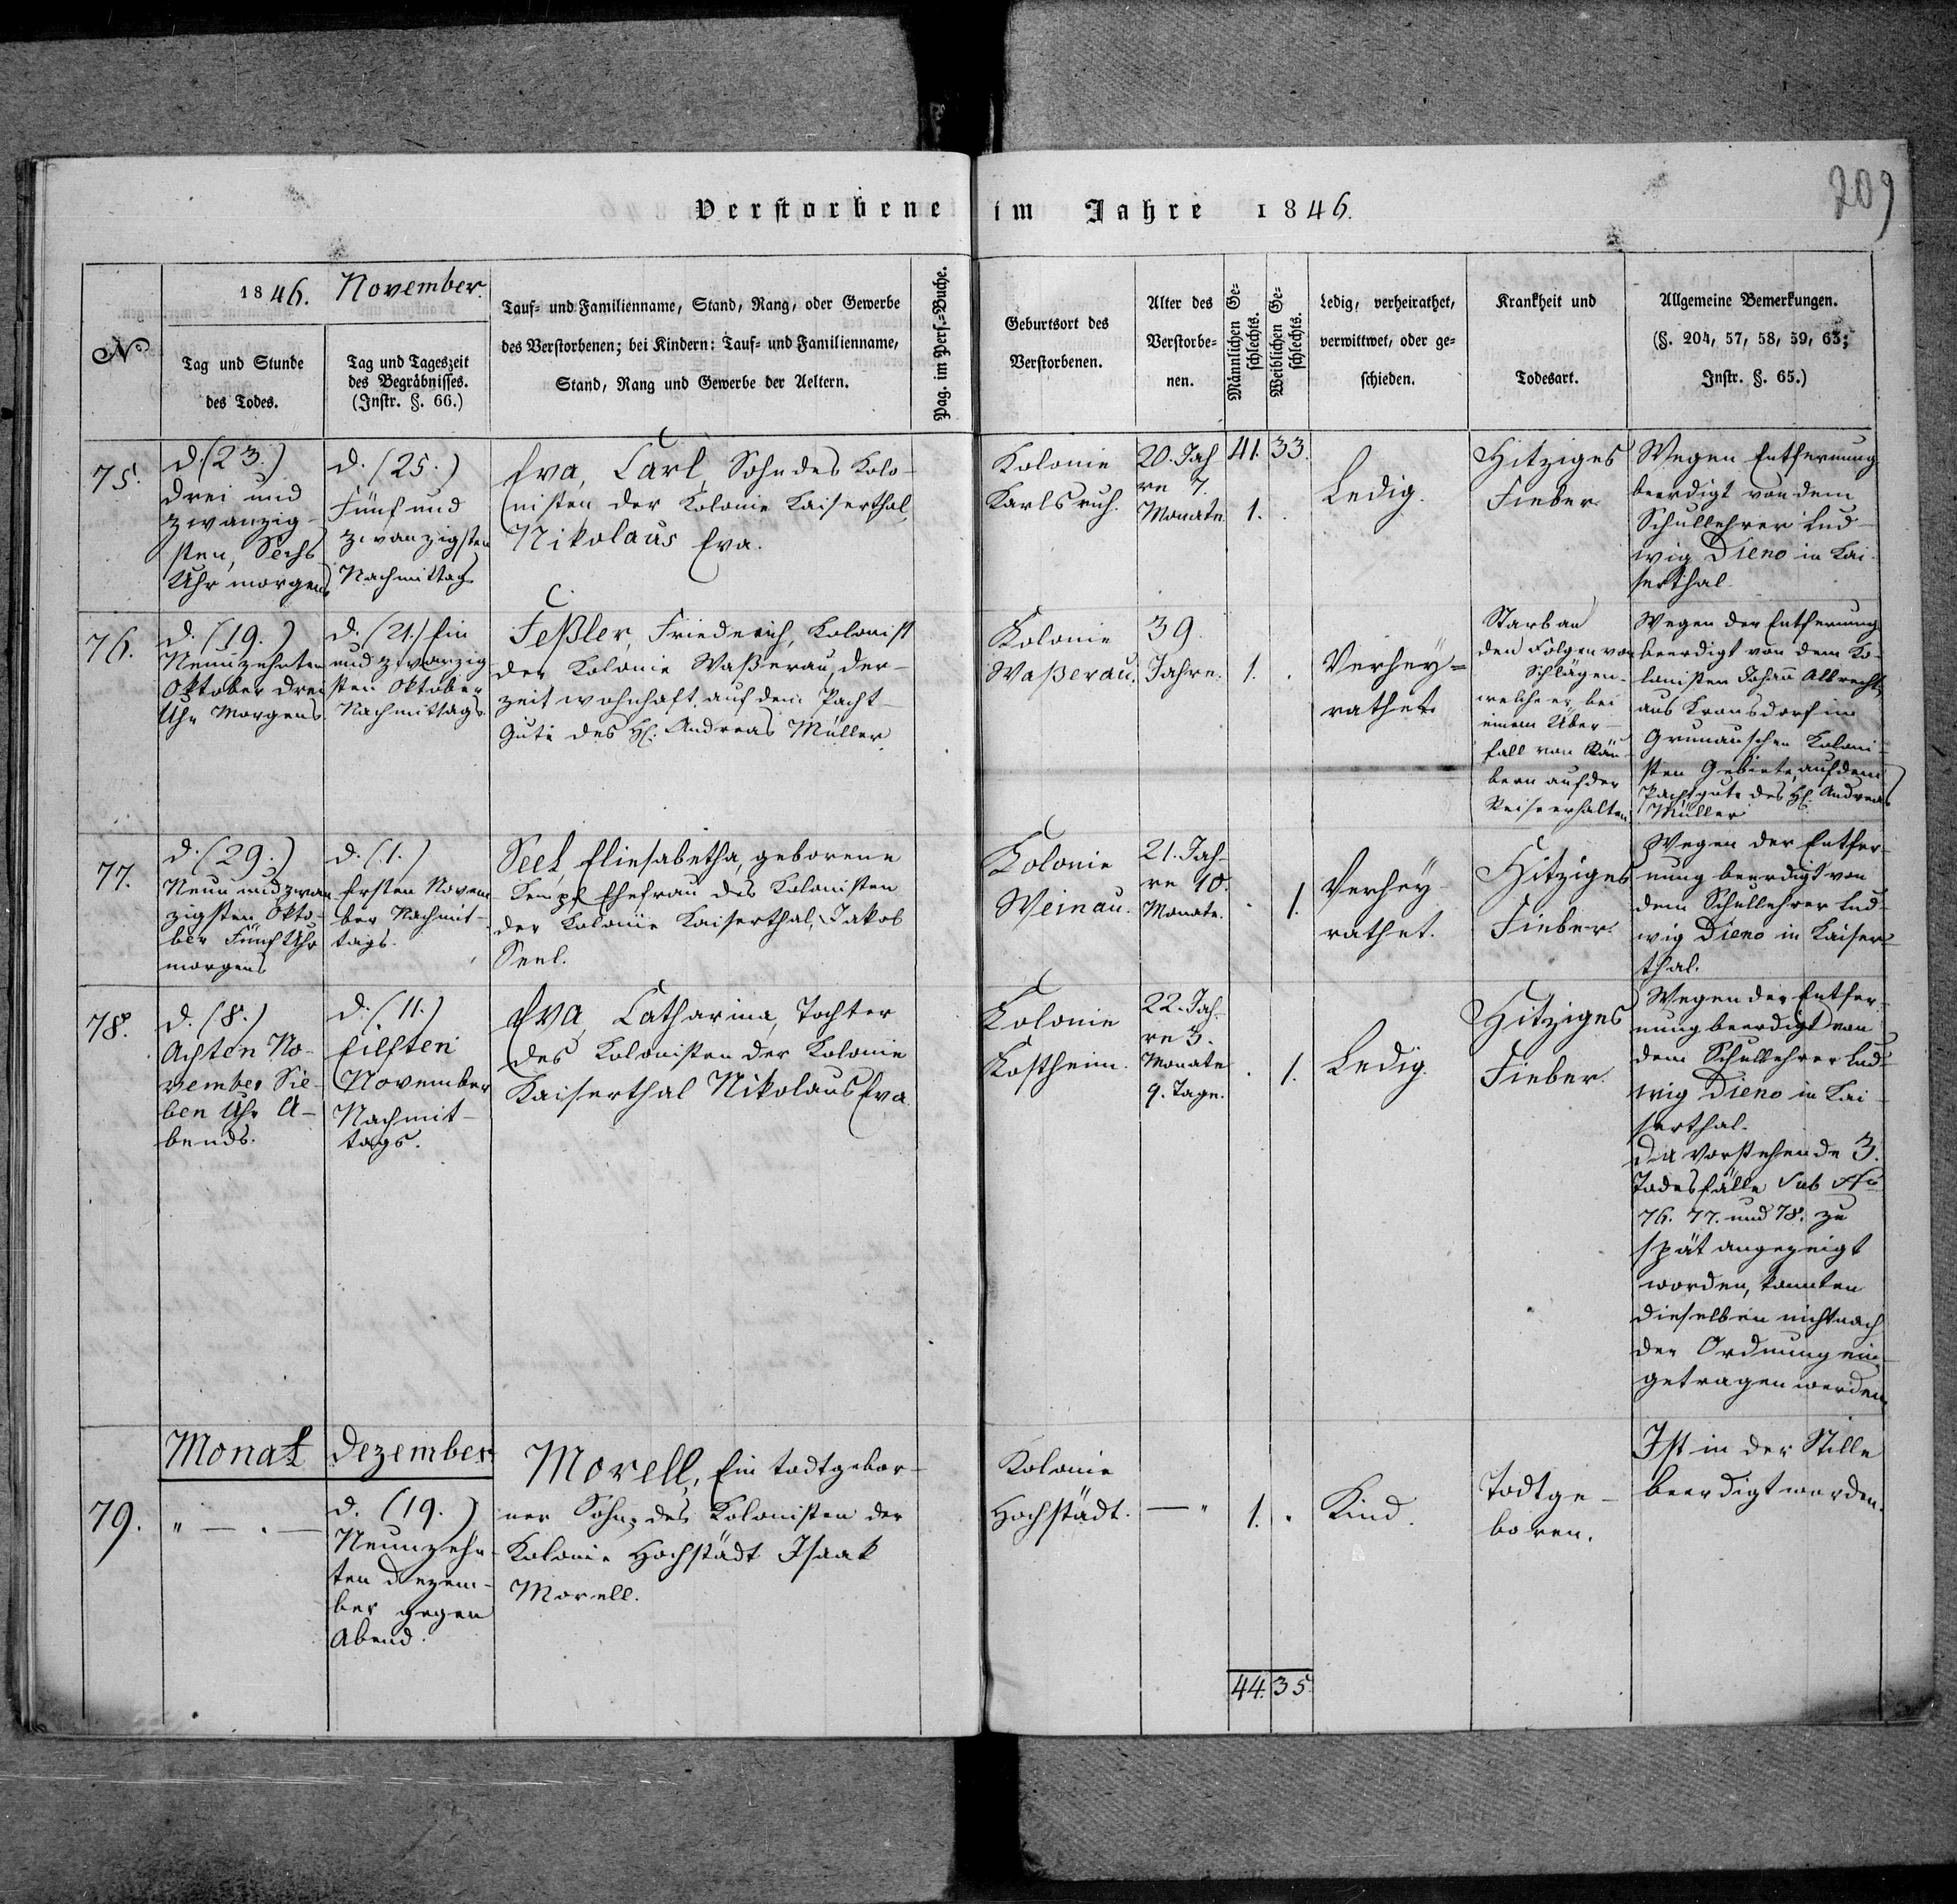 209
Verstorbene im Jahre 1846.
No
1846. November.
Tag und Stunde
des Todes.
Tag und Tageszeit
des Begräbnisses.
(Instr. §. 66.)
Tauf- und Familienname, Stand, Rang, oder Gewerbe
des Verstorbenen; bei Kindern: Tauf- und Familienname,
Stand, Rang und Gewerbe der Aeltern.
Pag. im Pers.-Buche.
Geburtsort des
Verstorbenen.
Alter des
Verstorbe-
nen.
Männlichen Ge-
schlechts.
Weiblichen Ge-
schlechts.
Ledig, verheirathet,
verwittwet, oder ge-
schieden.
Krankheit und
Todesart.
Allgemeine Bemerkungen.
(§. 204, 57, 58, 59, 63;
Instr. §. 65.)
75.
d. (23.)
Drei und
zwanzig-
sten, Sechs
Uhr morgens
d. (25.)
Fünf und
zwanzigsten
Nachmittag
Eva, Carl, Sohn des Kolo-
nisten der Kolonie Kaiserthal,
Nikolaus Eva.
Kolonie
Karlsruh.
20. Jah
re 7.
Monate.
41. 33.
1. .
Ledig.
Hitziges
Fieber
Wegen Entfernung
beerdigt von dem
Schullehrer Lud-
wig Dieno in Kai-
serthal
76.
d. (19.)
Neunzehnten
Oktober drei
Uhr Morgens.
d. (21.) Ein
und zwanzig
sten Oktober
Nachmittags
Feßler, Friederich, Kolonist
der Kolonie Waßerau, der-
zeit wohnhaft auf dem Pacht-
Gute des H. Andreas Müller.
Kolonie
Waßerau.
39.
Jahre.
1. .
Verhey-
rathet.
Starb an
den Folgen von
Schlägen-
welche er bei
einem Über-
fall von Räu-
bern auf der
Reise erhalten
Wegen der Entfernung
beerdigt von dem Ko-
lonisten Johann Albrecht
aus Kronsdorf im
Grunauschen Koloni-
sten Gebiete, auf dem
Pachtgute des H. Andreas
Müller
77.
d. (29.)
Neun und zwan
zigsten Okto-
ber Fünf Uhr
morgens
d. (1.)
Ersten Novem
ber Nachmit-
tags.
Seel, Eliesabetha, geborene
Kempf Ehefrau des Kolonisten
der Kolonie Kaiserthal, Jakob
Seel.
Kolonie
Weinau.
21. Jah-
re 10.
Monate.
. 1.
Verhey-
rathet.
Hitziges
Fieber.
Wegen der Entfer-
nung beerdigt von
dem Schullehrer Lud-
wig Dieno in Kaiser-
thal.
78.
d. (8.)
Achten No-
vember Sie-
ben Uhr A-
bends.
d. (11.)
Eilften
November
Nachmit-
tags.
Eva, Catharina, Tochter
des Kolonisten der Kolonie
Kaiserthal Nikolaus Eva.
Kolonie
Kostheim.
22. Jah-
re 3.
Monate
9. Tage.
. 1.
Ledig.
Hitziges
Fieber.
Wegen der Entfer-
nung beerdigt von
dem Schullehrer Lud-
wig Dieno in Kai-
serthal.
Da vorstehende 3.
Todesfälle sub No
76. 77. und 78. zu
spät angezeigt
worden, konnten
dieselben nicht nach
der Ordnung ein-
getragen werden
Monat Dezember
79.
" — . —
d. (19.)
Neunzehn-
ten Dezem-
ber gegen
Abend.
Morell, Ein todtgebor-
ner Sohn des Kolonisten der
Kolonie Hochstädt Isaak
Morell.
Kolonie
Hochstädt.
— "
1. .
Kind.
Todtge-
boren.
Ist in der Stille
beerdigt worden.
44. 35.